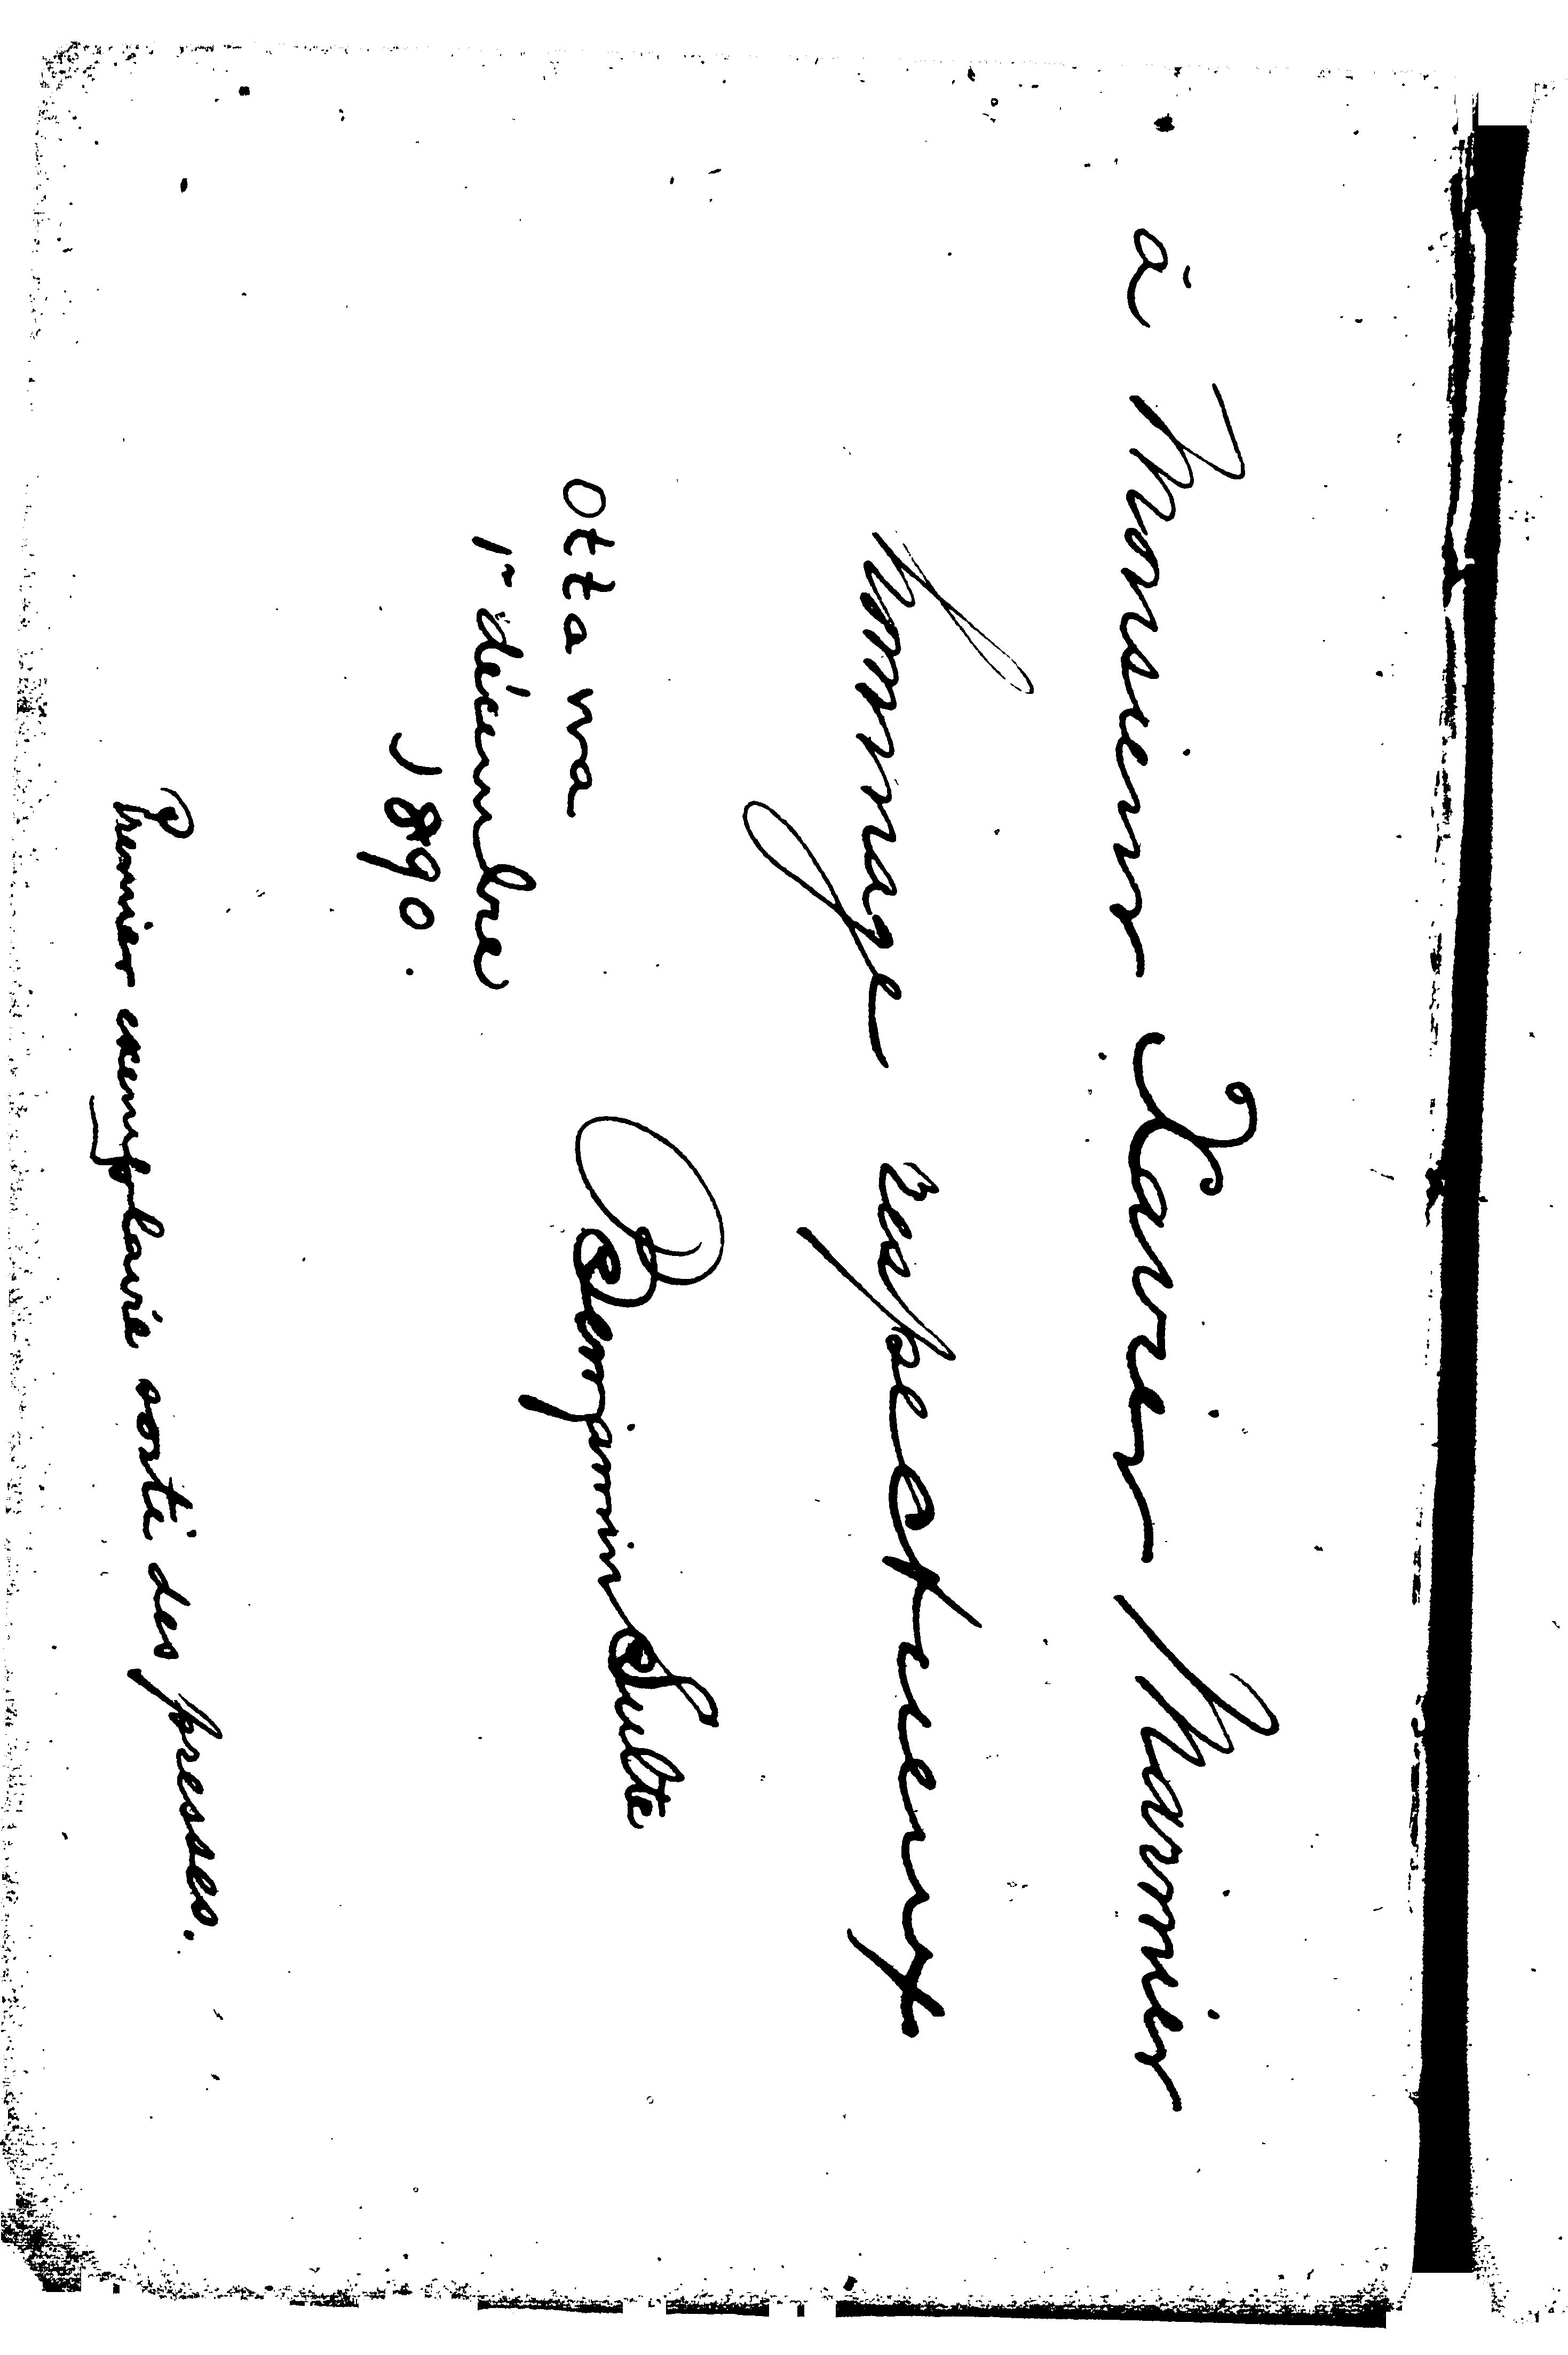 à Monsieur Xavier Marmier
hommage respectueux
Benjamin Sulte
Ottawa
1er décembre
1890.
Premier exemplaire sorti des presses.